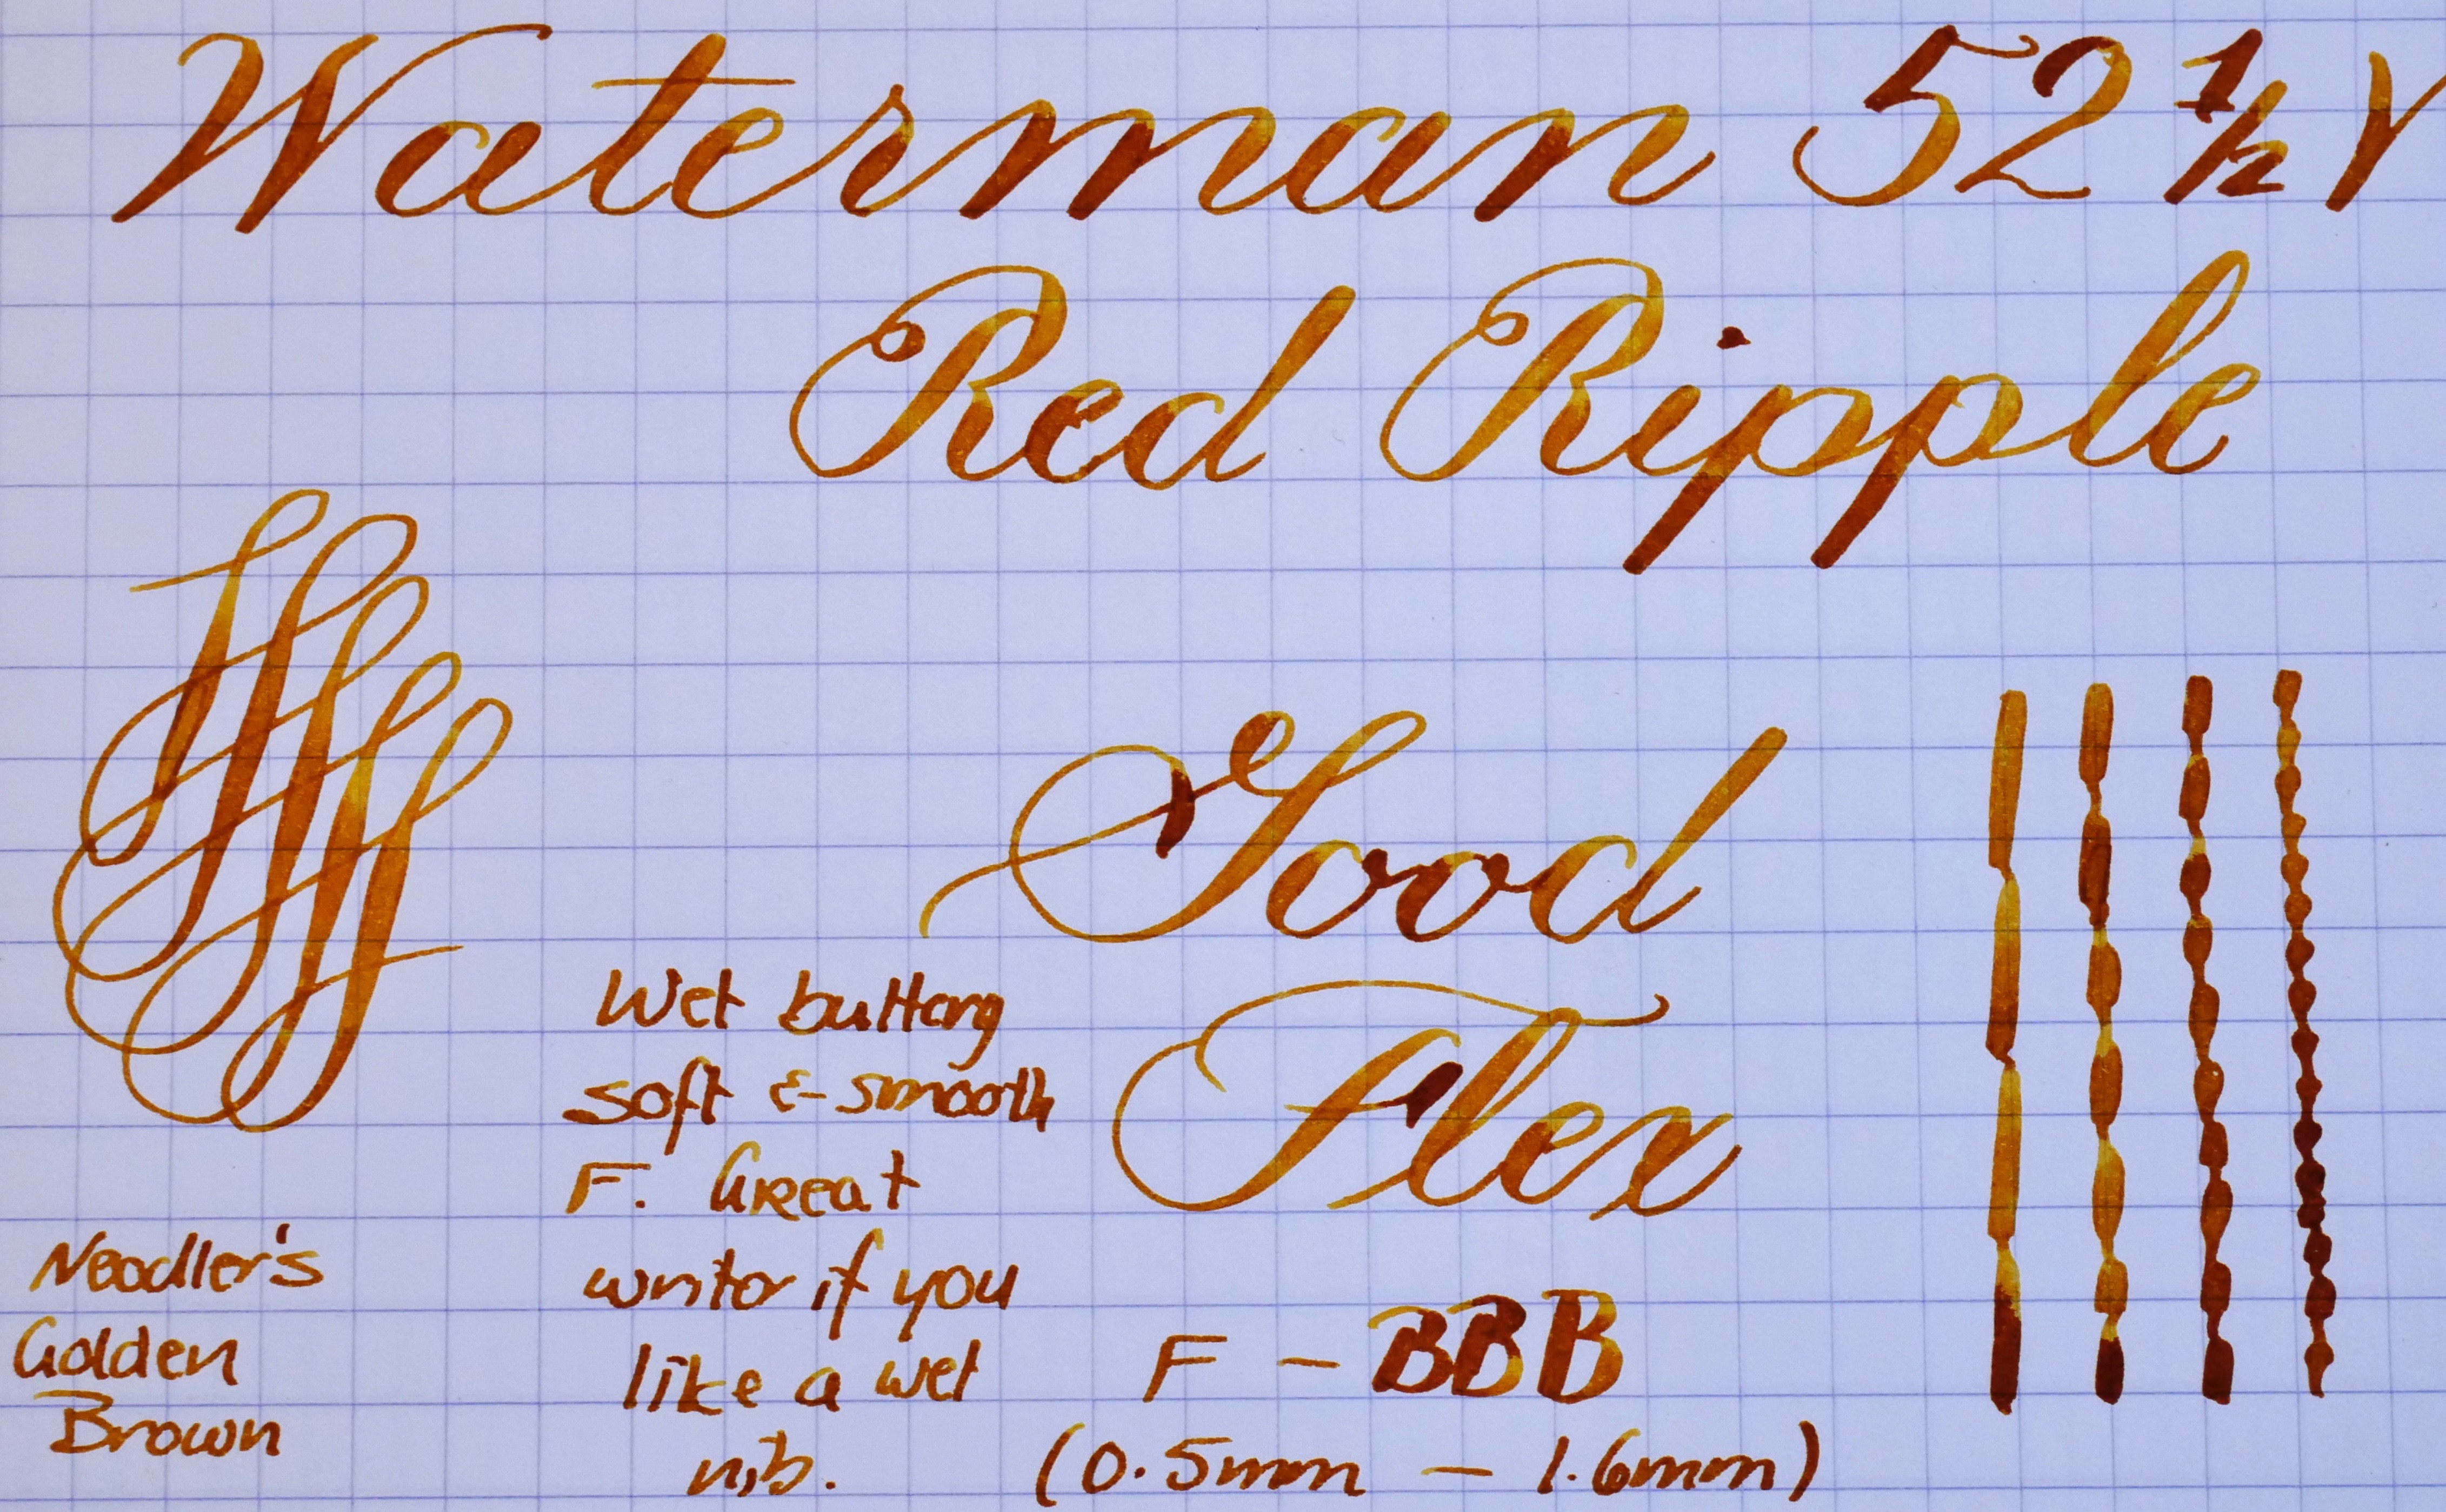 Waterman 52 ½ V
Red Ripple
Good
Flex
Wet buttery
soft & smooth
F. Great
writer if you
like a wet
nib.
Noodler's
Golden
Brown
F - BBB
(0.5mm - 1.6mm)